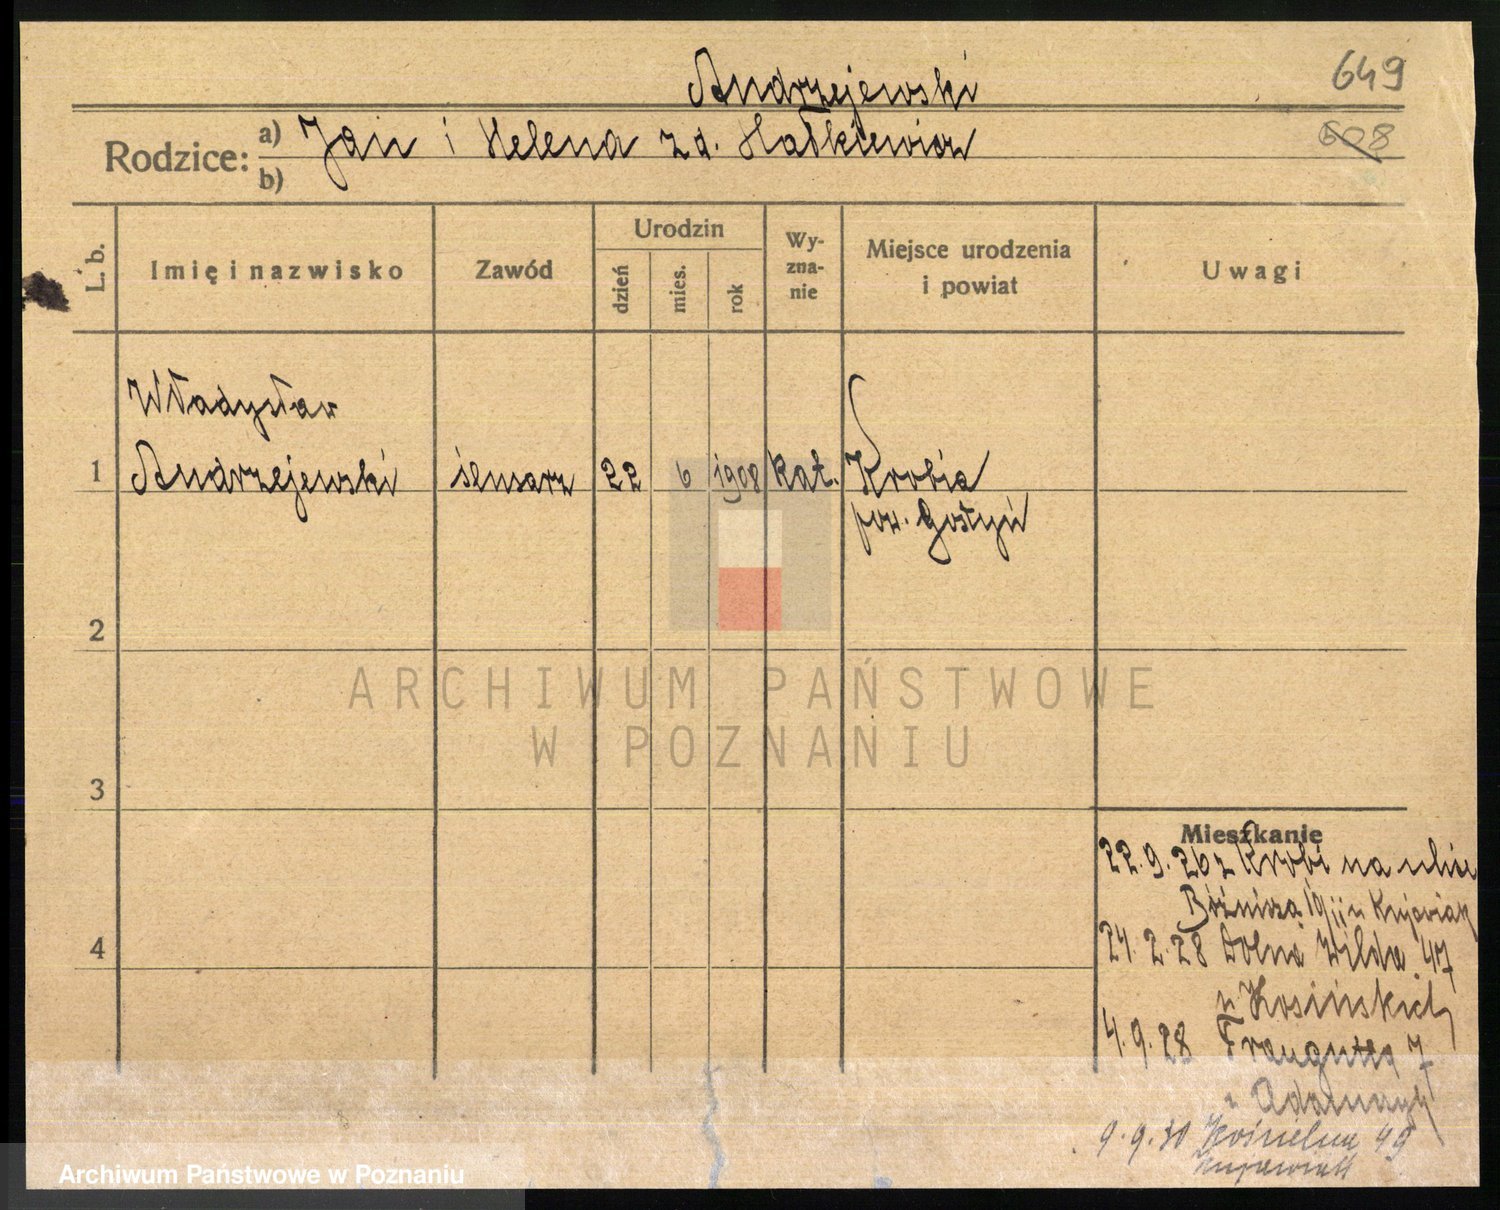 Andrzejewski
649
608
Rodzice: a) Jan i Helena zd. Hałkiewicz
b)
L. b.
Imię i nazwisko
Zawód
Urodzin
dzień
mies.
rok
Wy-
zna-
nie
Miejsce urodzenia
i powiat
Uwagi
Władysław
1 Andrzejewski ślusarz 22 6 1908 kat. Krobia
pow. Gostyń
2
ARCHIWUM PAŃSTWOWE
W POZNANIU
3
Mieszkanie
22.9.26 z Krobi na ulicę
Bóźnicza 19 u Kujawiak
4
24.2.28 Dolna Wilda 47
u Kosińskich
4.9.28 Traugutta 7
u
9.9.30 Kościelna 49
Kujawiak
Archiwum Państwowe w Poznaniu